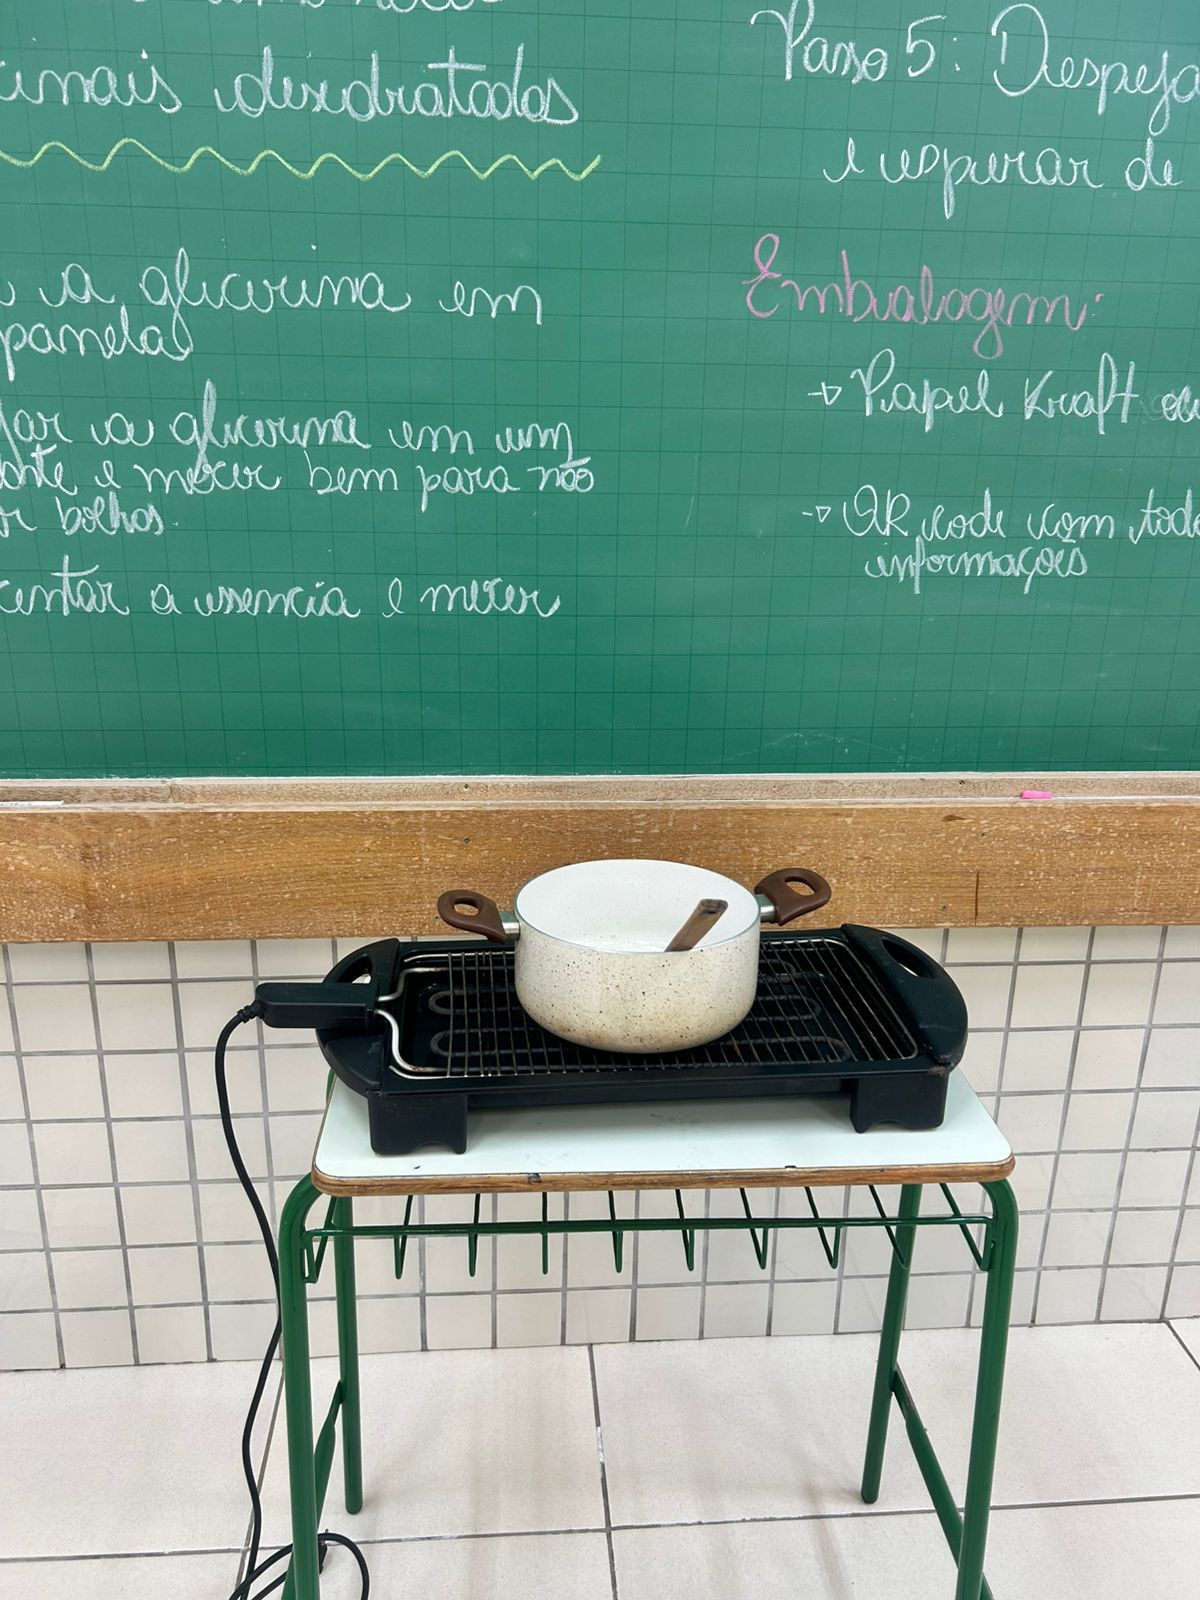 desidratados
a glicerina em
panela
a glicerina em um
e mexer bem para não
bolhas.
a essencia e mexer
Passo 5: Despeja
e esperar de
Embalagem:
→ Papel Kraft
→ QR code com toda
informações